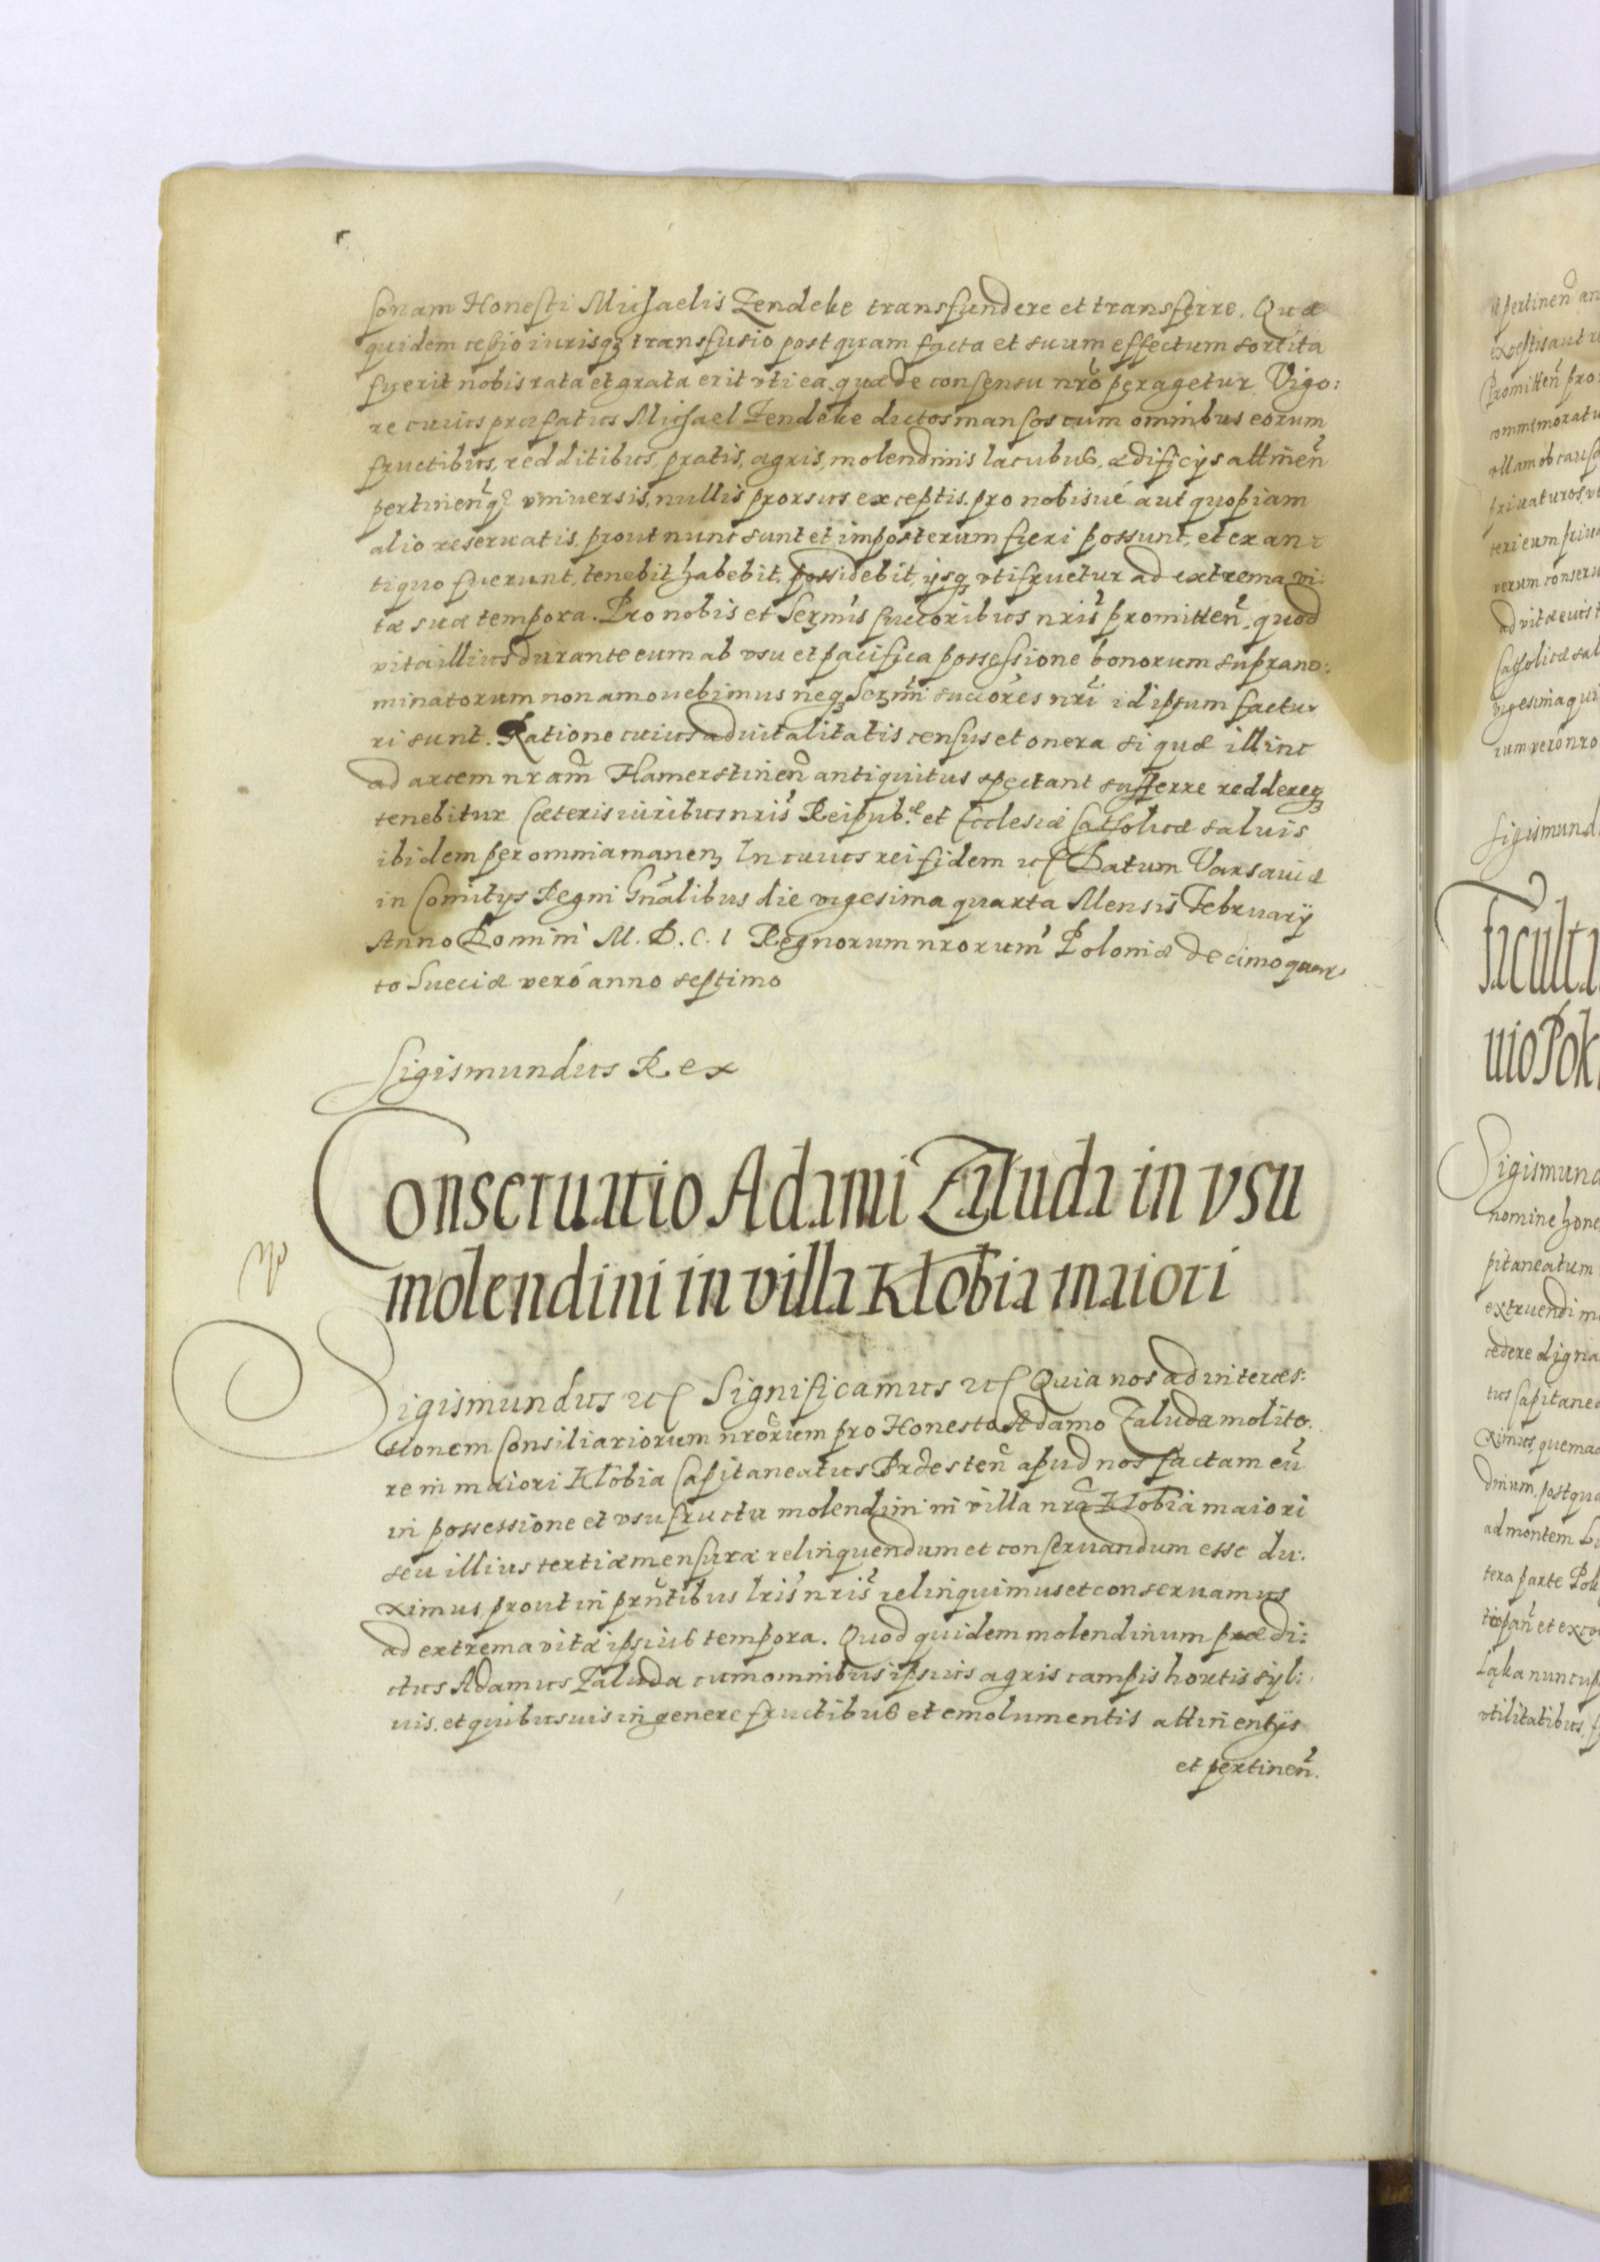 sonam Honesti Michaelis Zendeke transfundere et transferre. Quæ
quidem cessio iurisq₃ transfusio postquam facta et suum effectum sortita
fuerit nobis rata et grata erit vti ea quæ de consensu nrõ peragetur. Vigo:
re cuius præfatus Michael Zendeke dictos mansos cum omnibus eorum
fructibus, redditibus, pratis, agris, molendinis lacubus, ædificÿs attineñ
pertineñq₃ vniversis, nullis prorsus exceptis. pro nobisué aut quopiam
alio reseruatis, prout nunc sunt et imposterum fieri possunt, et ex an
tiquo fuerunt, tenebit habebit, possidebit, ijsq₃ vtifruetur ad extrema vi:
tæ suæ tempora. Pro nobis et Serm̃is succoribus nris̃ promitteñ, quod
vita illius durante eum ab vsu et pacifica possessione bonorum suprano:
minatorum non amouebimus neq₃ Serm̃i succores nrĩ id ipsum factu
ri sunt. Ratione cuius aduitalitatis census et onera si quæ illinc
ad arcem nram̃ Hamerstineñ antiquitus spectant sufferre reddereq₃
tenebitur Cæteris iuribus nris̃ Reipub.æ et Ecclesiæ Catholicæ saluis
ibidem per omnia maneñ. In cuius rei fidem etc Datum Varsauiæ
in Comitÿs Regni Gñalibus die vigesima quarta Mensis Februarÿ
Anno Domini M. D. C. I Regnorum nrorum̃ Poloniæ decimo quar
to Sueciæ veró anno septimo
Sigismundus Rex
Conseruatio Adami Załuda in vsu
molendini in villa Kłobia maiori
Sigismundus etc Significamus etc Quia nos ad interces:
sionem Consiliariorum nrõrum pro Honesto Adamo Załuda molito.
re in maiori Kłobia Capitaneatus Prdesteñ apud nos factam eũ
in possessione et vsufructu molendini in villa nrã Kłobia maiori
seu illius tertiæ mensuræ relinquendum et conseruandum esse du:
ximus prout in prñtibus lris̃ nris̃ relinquimus et conseruamus
ad extrema vitæ ipsius tempora. Quod quidem molendinum prædi:
ctus Adamus Załuda cum omnibus ipsius agris campis hortis syl:
uis, et quibusuis in genere fructibus et emolumentis attinentÿs
et pertineñ.